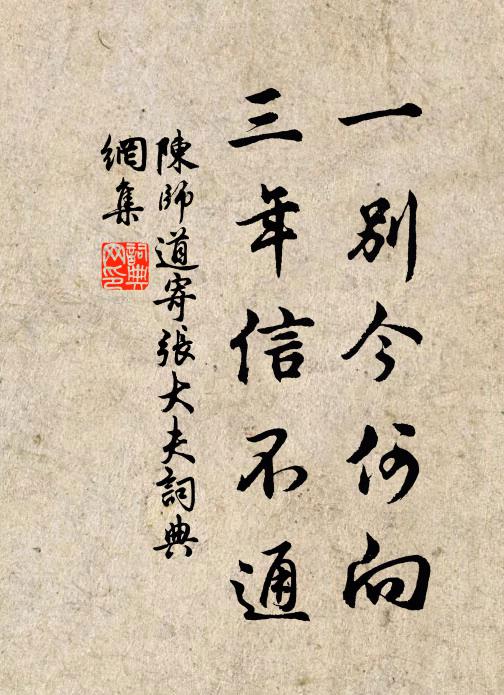 一别今何向
三年信不通
陳師道寄張大夫詞典
網集
詞典
网印